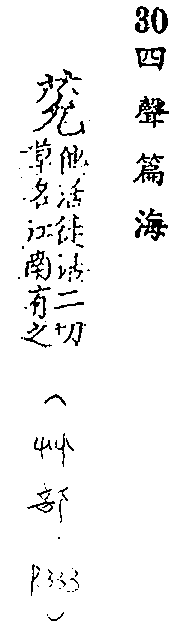 30四聲篇海
他活徒活二切
草名江南有之
(艸部.P.333)